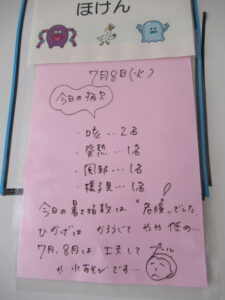 ほけん
7月8日(火)
今日の病欠
・咳…2名
・発熱…1名
・様子見…1名
今日の暑さ指数は"危険"でした
ひかげは かろうじて やや低め…
7月、8月は 工夫して プール
や 水あそびです…